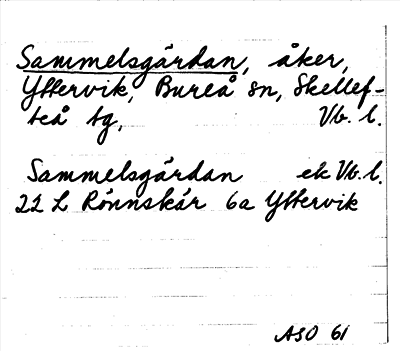 Sammelsgärdan, åker,
Yttervik, Bureå sn, Skellef-
teå tg, Vb. l.
Sammelsgärdan ek Vb. l.
22 L Rönnskär 6a Yttervik
ASO 61